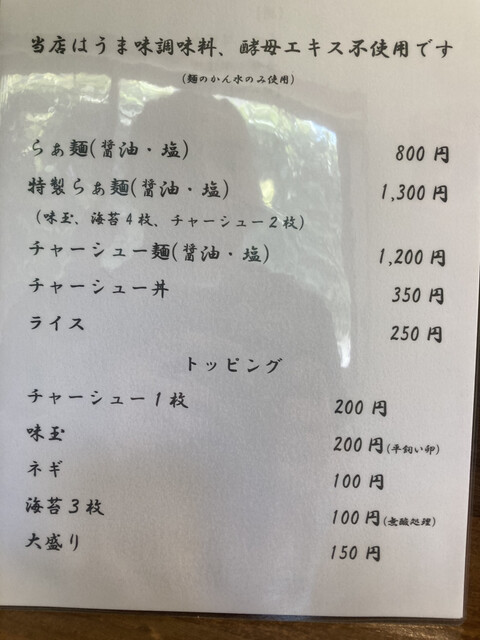 当店はうま味調味料、酵母エキス不使用です
(麺のかん水のみ使用)
らぁ麺(醤油・塩) 800円
特製らぁ麺(醤油・塩) 1,300円
(味玉、海苔4枚、チャーシュー2枚)
チャーシュー麺(醤油・塩) 1,200円
チャーシュー丼 350円
ライス 250円
トッピング
チャーシュー1枚 200円
味玉 200円(平飼い卵)
ネギ 100円
海苔3枚 100円(無酸処理)
大盛り 150円